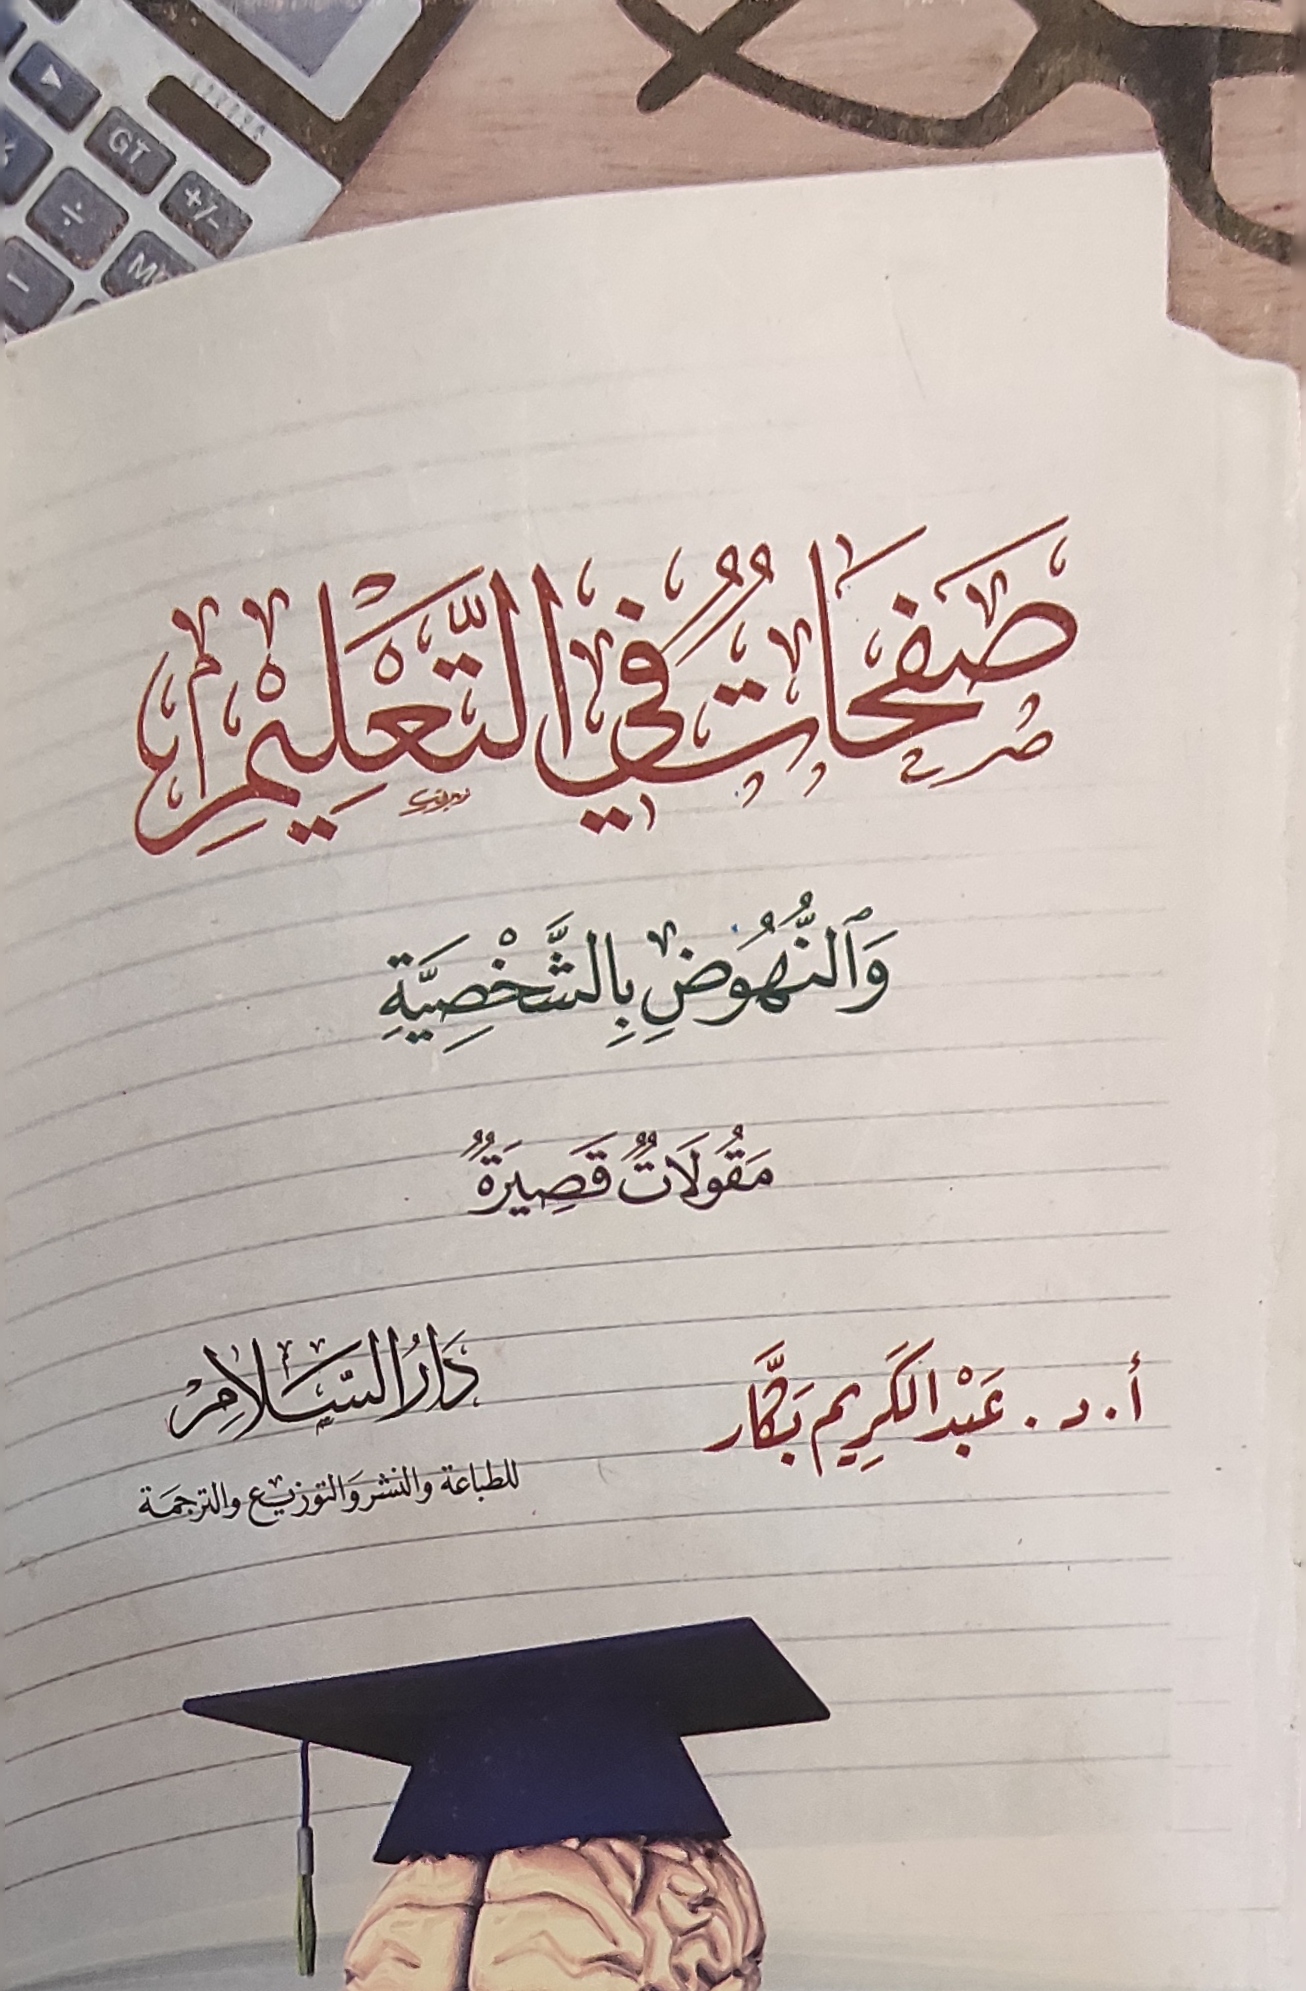 GT
+/-
÷
صَفَحَاتٌ فِي التَّعْلِيمِ
وَٱلنُّهُوَضِ بِالشَّخْصِيَّةِ
مَقُولَاتٌ قَصِيرَةٌ
أ. د. عَبْدالكَرِيم بَكَّار
دَارُ السَّلَامِ
للطباعة والنشر وَالتوزيع والترجمَة